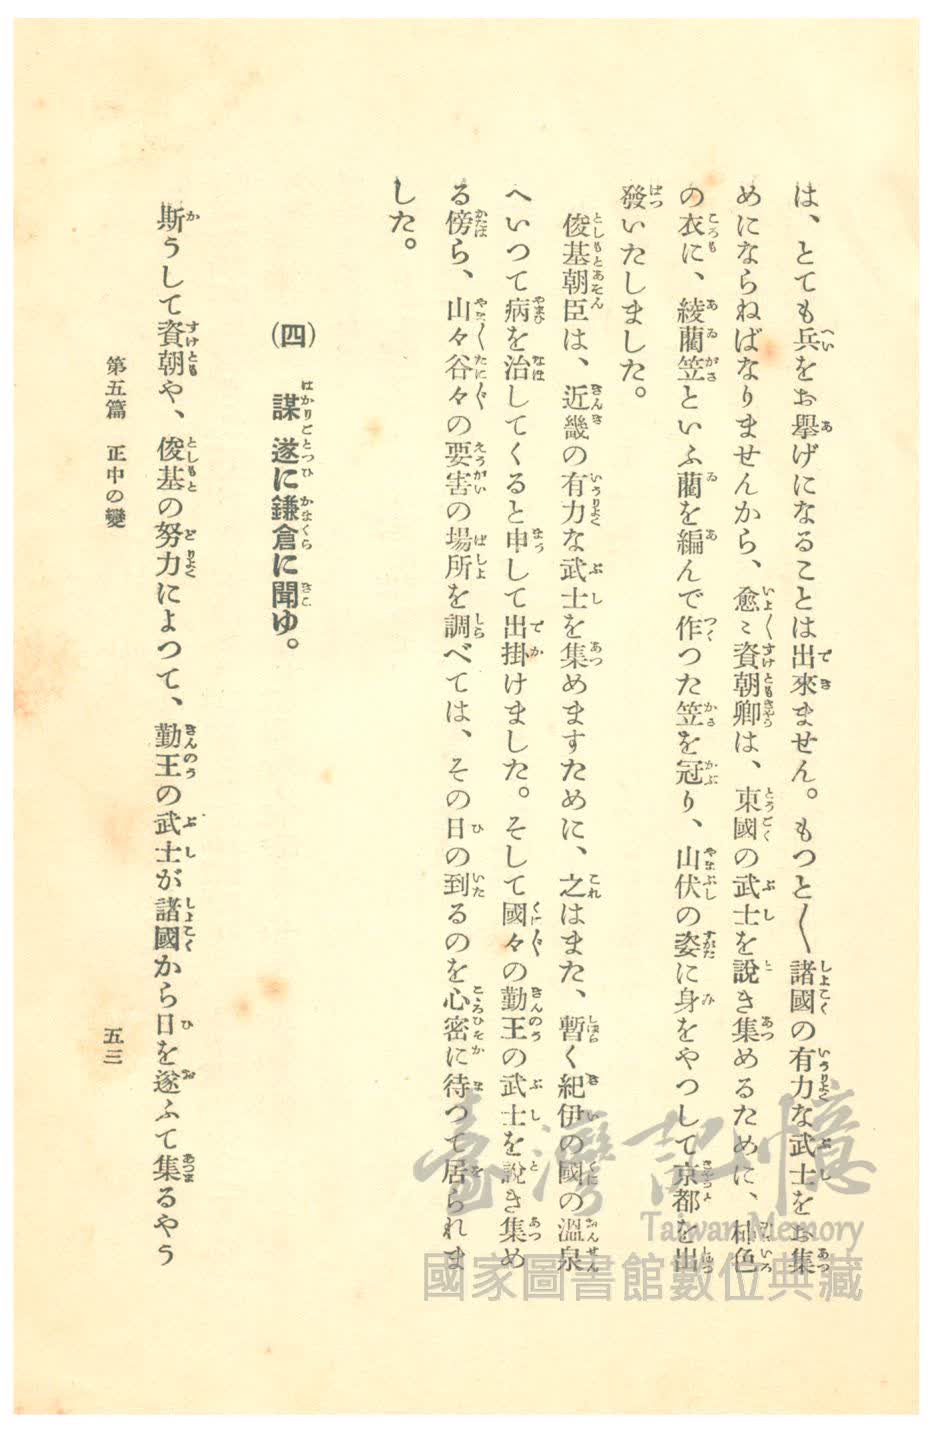 は、とても兵をお擧げになることは出來ません。もつと〳〵諸國の有力な武士をお集
めにならねばなりませんから、愈〻資朝卿は、東國の武士を說き集めるために、柿色
の衣に、綾藺笠といふ藺を編んで作つた笠を冠り、山伏の姿に身をやつして京都を出
發いたしました。
俊基朝臣は、近畿の有力な武士を集めますために、之はまた、暫く紀伊の國の溫泉
へいつて病を治してくると申して出掛けました。そして國々の勤王の武士を說き集め
る傍ら、山々谷々の要害の場所を調べては、その日の到るのを心密に待つて居られま
した。
(四) 謀遂に鎌倉に聞ゆ。
斯うして資朝や、俊基の努力によつて、勤王の武士が諸國から日を遂ふて集るやう
第五篇 正中の變
五三
臺灣記憶
Taiwan Memory
國家圖書館數位典藏